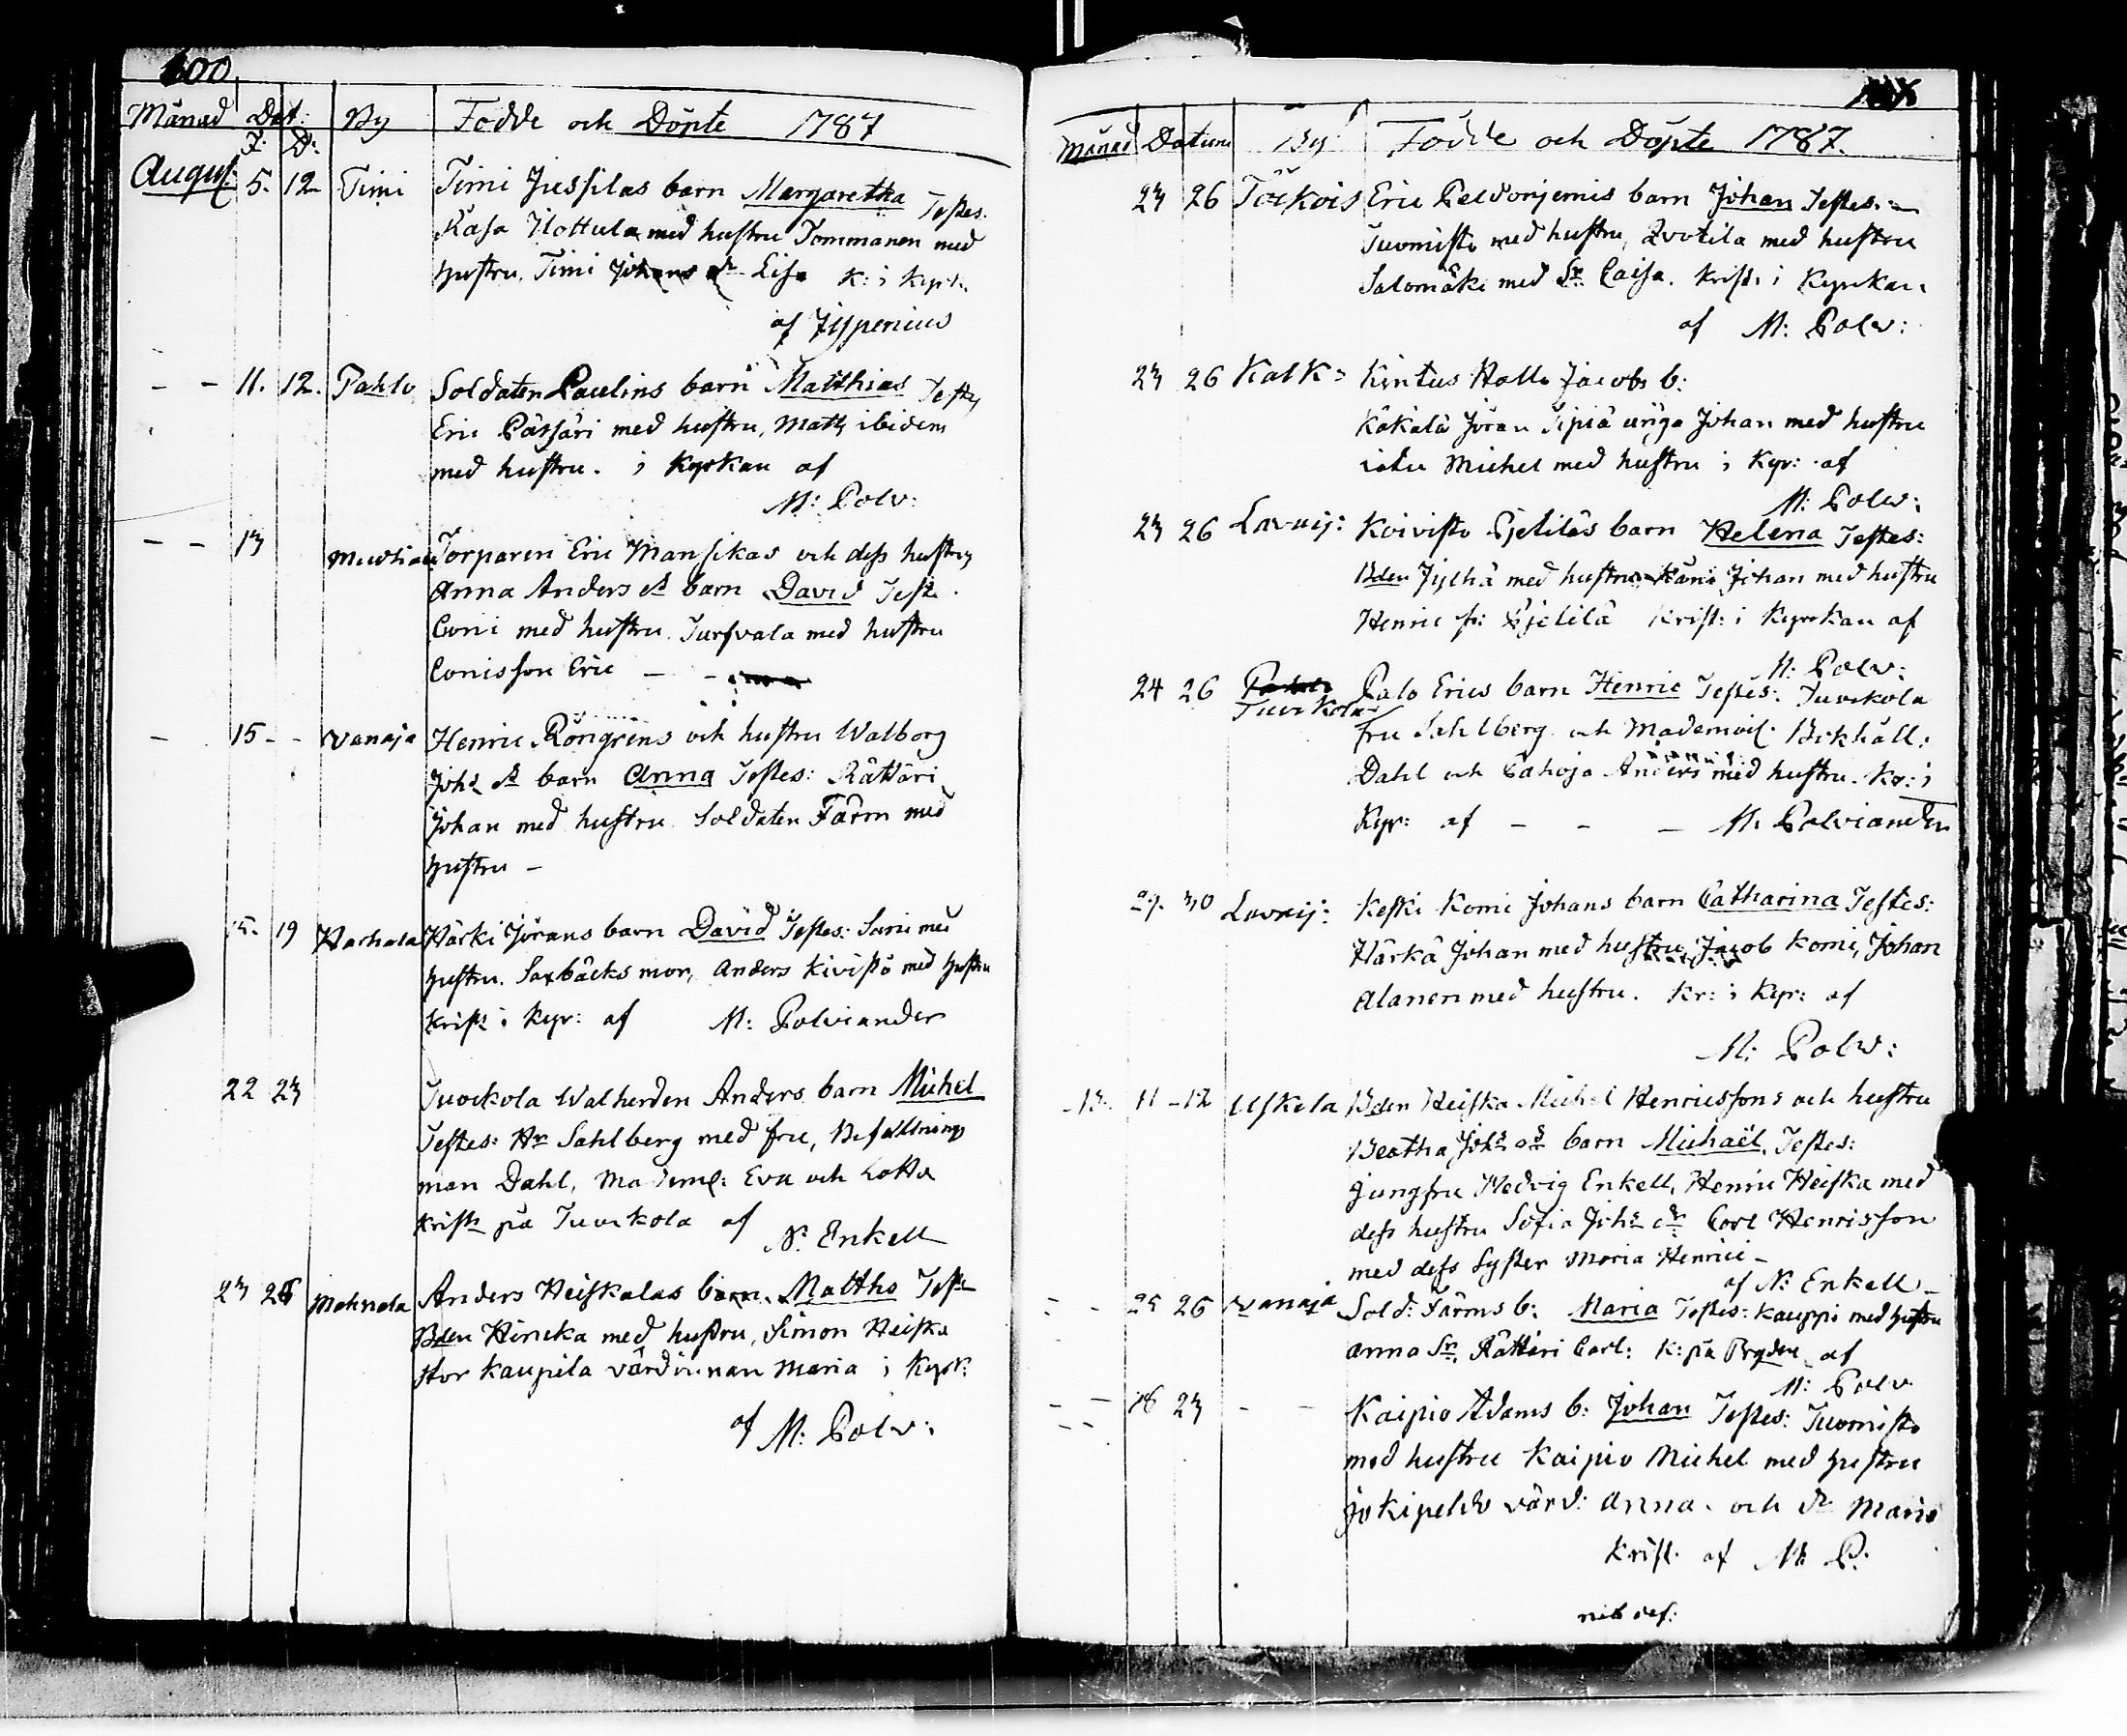 600
Månad Dat: By Födde och Döpte 1787
F: D:
August 5. 12 Timi Timi Jussilas barn Margaretha Testes.
Kasa Hottula med hustru Tommanen med
hustru, Timi Johans dr Lisa K: i Kyrk.
af Jypenius
- - 11. 12. Pahlo Soldaten Paulins barn Matthias Testes
Eric Pätjäri med hustru, Matts ibidem
med hustru. i Kyrkan af
M: Polv:
- - 13 Torparen Eric Mansikas och dess hustru
Anna Anders dr barn David Test.
Coni med hustru. Turfvala med hustru
Conisson Eric - -
- 15 - - Vanaja Henric Röngrens och hustru Walborg
Johs dr barn Anna Testes: Rättäri
Johan med hustru Soldaten Färm med
hustru -
15. 19 Harhala Härki Jörans barn David Testes: Sarie med
hustru. Saxbäcks mor, Anders Kivistö med hustru
Krist i Kyr: af M: Polviander
22 23 Tuvikola Walherden Anders barn Michel
Testes: Hr Sahlberg med fru, Befallnings
man Dahl, Madml: Eva och Lotta
Krist på Tuvikola af
N: Enkell
23 26 Mahnala Anders Heiskalas barn Matths Test
Bden Hincka med hustru, Simon Heiska
Stor Kaupila värdinnan Maria i Kyrk:
af M: Polv:
Månad Datum By Födde och Döpte 1787.
23 26 Töckois Eric Peldonjemis barn Johan Testes. -
Tuomisto med hustru, Qvotila med hustru
Salomäki med Sr Caisa. Krist: i Kyrkan
af M: Polv:
23 26 Kalk= Kintus Hallo Jacobs b:
Käkälä Jöran Sipiä unga Johan med hustru
Michel med hustru i Kyr: af
M: Polv:
23 26 Lavaij: Koivisto Pjetiläs barn Helena Testes:
Bden Jylhä med hustru Johan med hustru
Henric Pjetilä Krist: i Kyrkan af
M: Polv:
24 26 Tuvikola Palo Erics barn Henric Testes: Tuvikola
fru Sahlberg och Mademois. Bekhäll:
Dahl och Cahoja Anders med hustru. Kr: i
Kyr: af - - - M: Polviander
29. 30 Lavaij: Keski Komi Johans barn Catharina Testes:
Härkä Johan med hustru, Jacob Komi, Johan
Alanen med hustru. Kr: i Kyr: af
M: Polv:
11 - 12 Uskila Bden Heiska Michel Henricssons och hustru
Beatha Johs dr barn Michaël, Testes:
Jungfru Hedvig Enkell, Henric Heiska med
dess hustru Sofia Johs dr Carl Henrisson
med dess Syster Maria Henrici -
af N: Enkell -
- - 25 26 Vanaja Sold: Färms b: Maria Testes: Kauppi med hustru
Anna Sr, Rättäri Carl: K: på Bryden af
M: Polv
- - 16 23 - - Kaipio Adams b: Johan Testes: Tuomisto
med hustru Kaipio Michel med hustru
Jokipeldo värd: Anna. och dr Maria
Krist. af M: P: